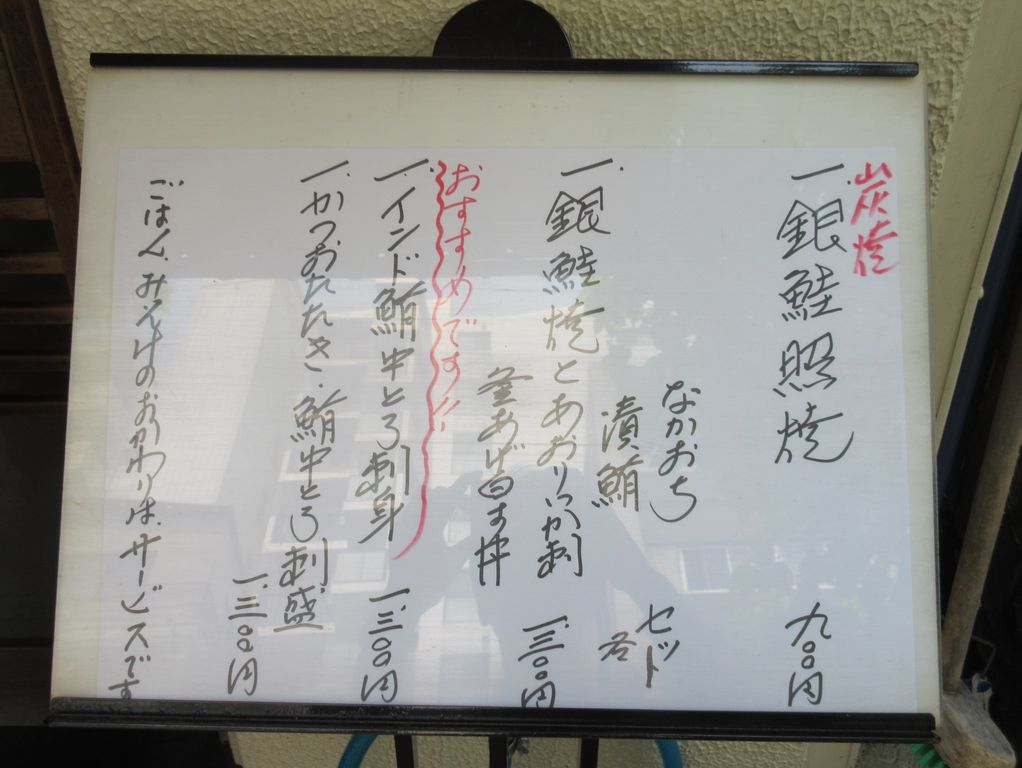 炭焼
一.銀鮭照焼 九〇〇円
なかおち
漬鮪 セット 各
一.銀鮭焼とあおりいか刺 一.三〇〇円
釜あげ白す丼
おすすめです!!
一.インド鮪中とろ刺身 一.三〇〇円
一.かつおたたき.鮪中とろ刺盛 一.三〇〇円
ごはん.みそ汁のおかわりは.サービスです